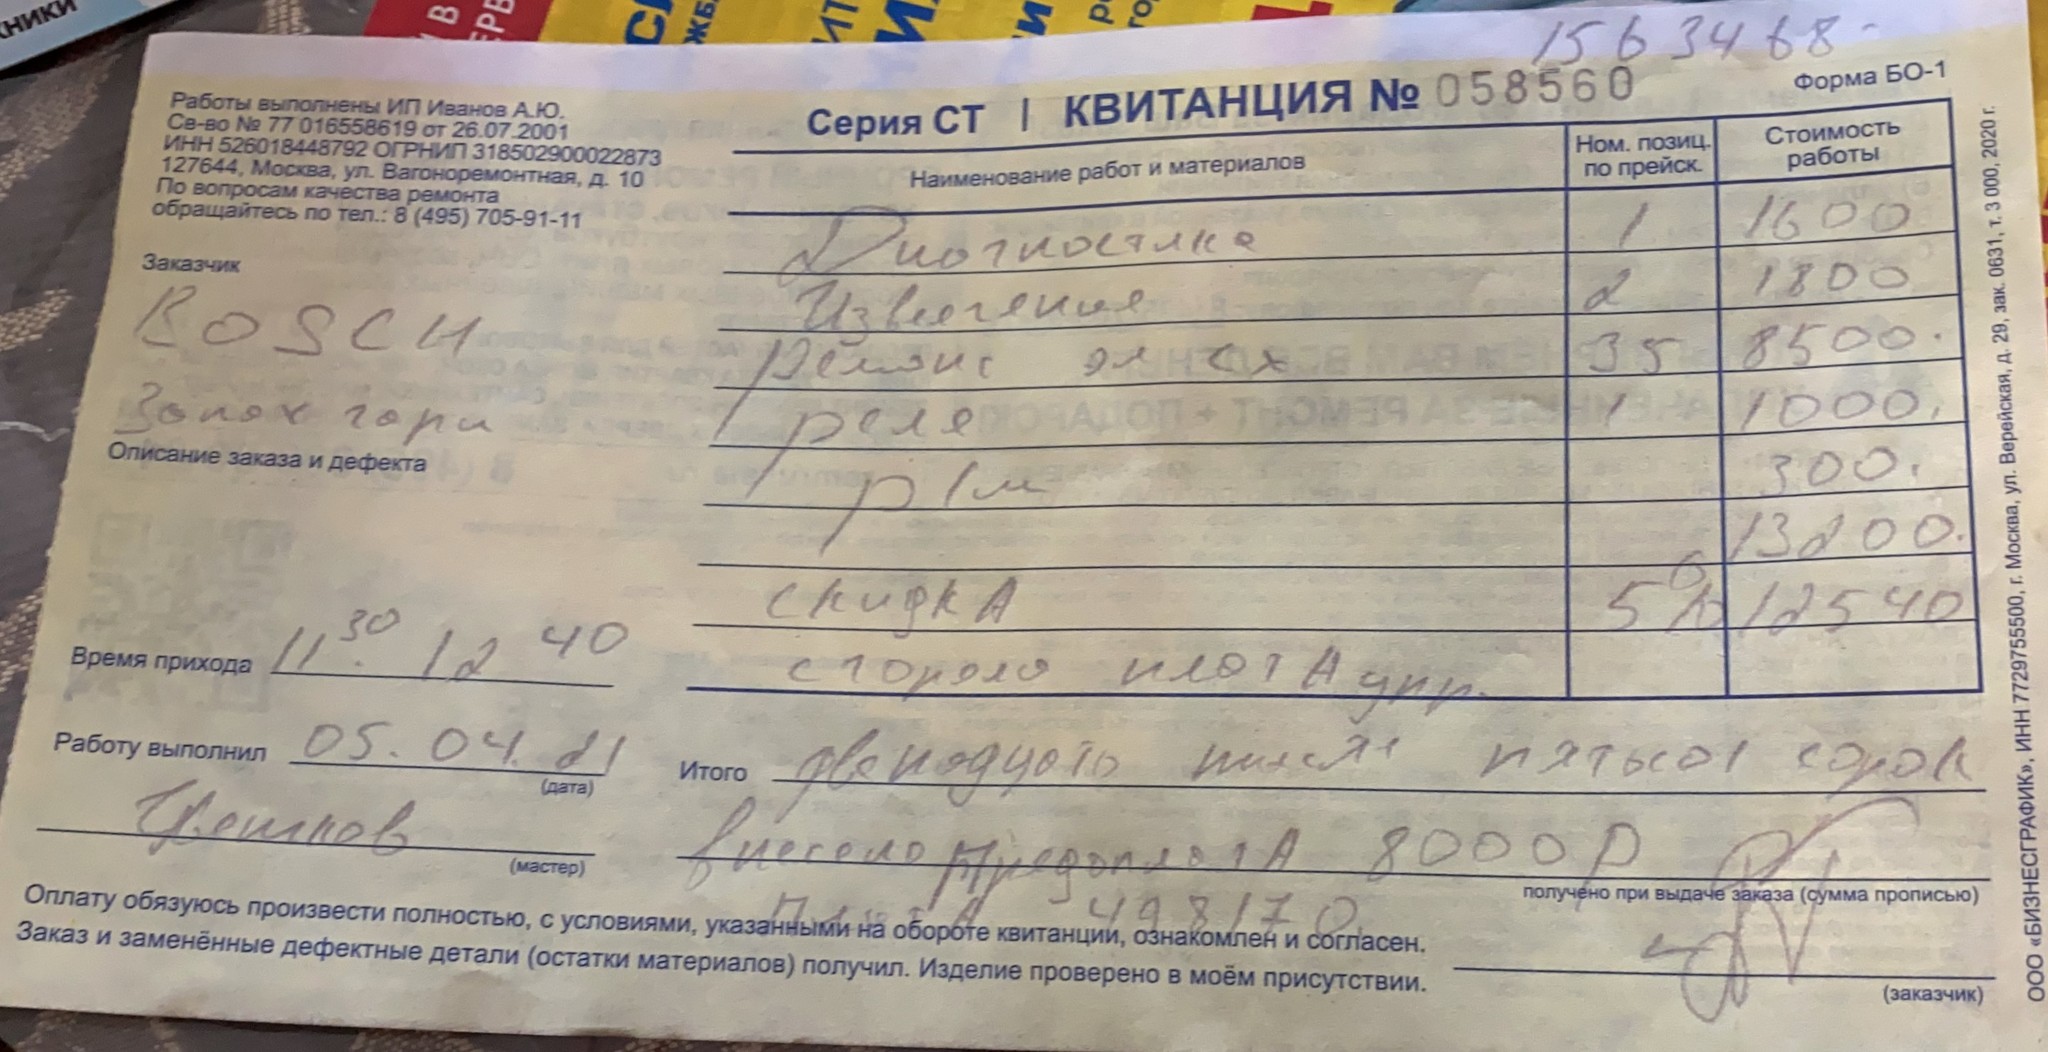 НИКИ
1563468-
Работы выполнены ИП Иванов А.Ю.
Св-во № 77 016558619 от 26.07.2001
ИНН 526018448792 ОГРНИП 318502900022873
127644, Москва, ул. Вагоноремонтная, д. 10
По вопросам качества ремонта
обращайтесь по тел.: 8 (495) 705-91-11
Серия СТ | КВИТАНЦИЯ № 058560
Форма БО-1
Наименование работ и материалов
Ном. позиц. по прейск.
Стоимость работы
Диогностика 1 1600
2 1800
Ремонт эл сх 35 8500.
реле 1 1000.
р/м 300.
13200.
скидкА 5% 12540
старая платА упр.
Заказчик
BOSCH
Запах гари
Описание заказа и дефекта
Время прихода 11 30. 12 40
Работу выполнил 05.04.21
(дата)
Цветков
(мастер)
Итого двенадцать тысяч пятьсот сорок
внесена предоплатА 8000 р
получено при выдаче заказа (сумма прописью)
498170.
Оплату обязуюсь произвести полностью, с условиями, указанными на обороте квитанции, ознакомлен и согласен.
Заказ и заменённые дефектные детали (остатки материалов) получил. Изделие проверено в моём присутствии.
(заказчик)
ООО «БИЗНЕСГРАФИК», ИНН 7729755500, г. Москва, ул. Верейская, д. 29, зак. 0631, т. 3 000, 2020 г.